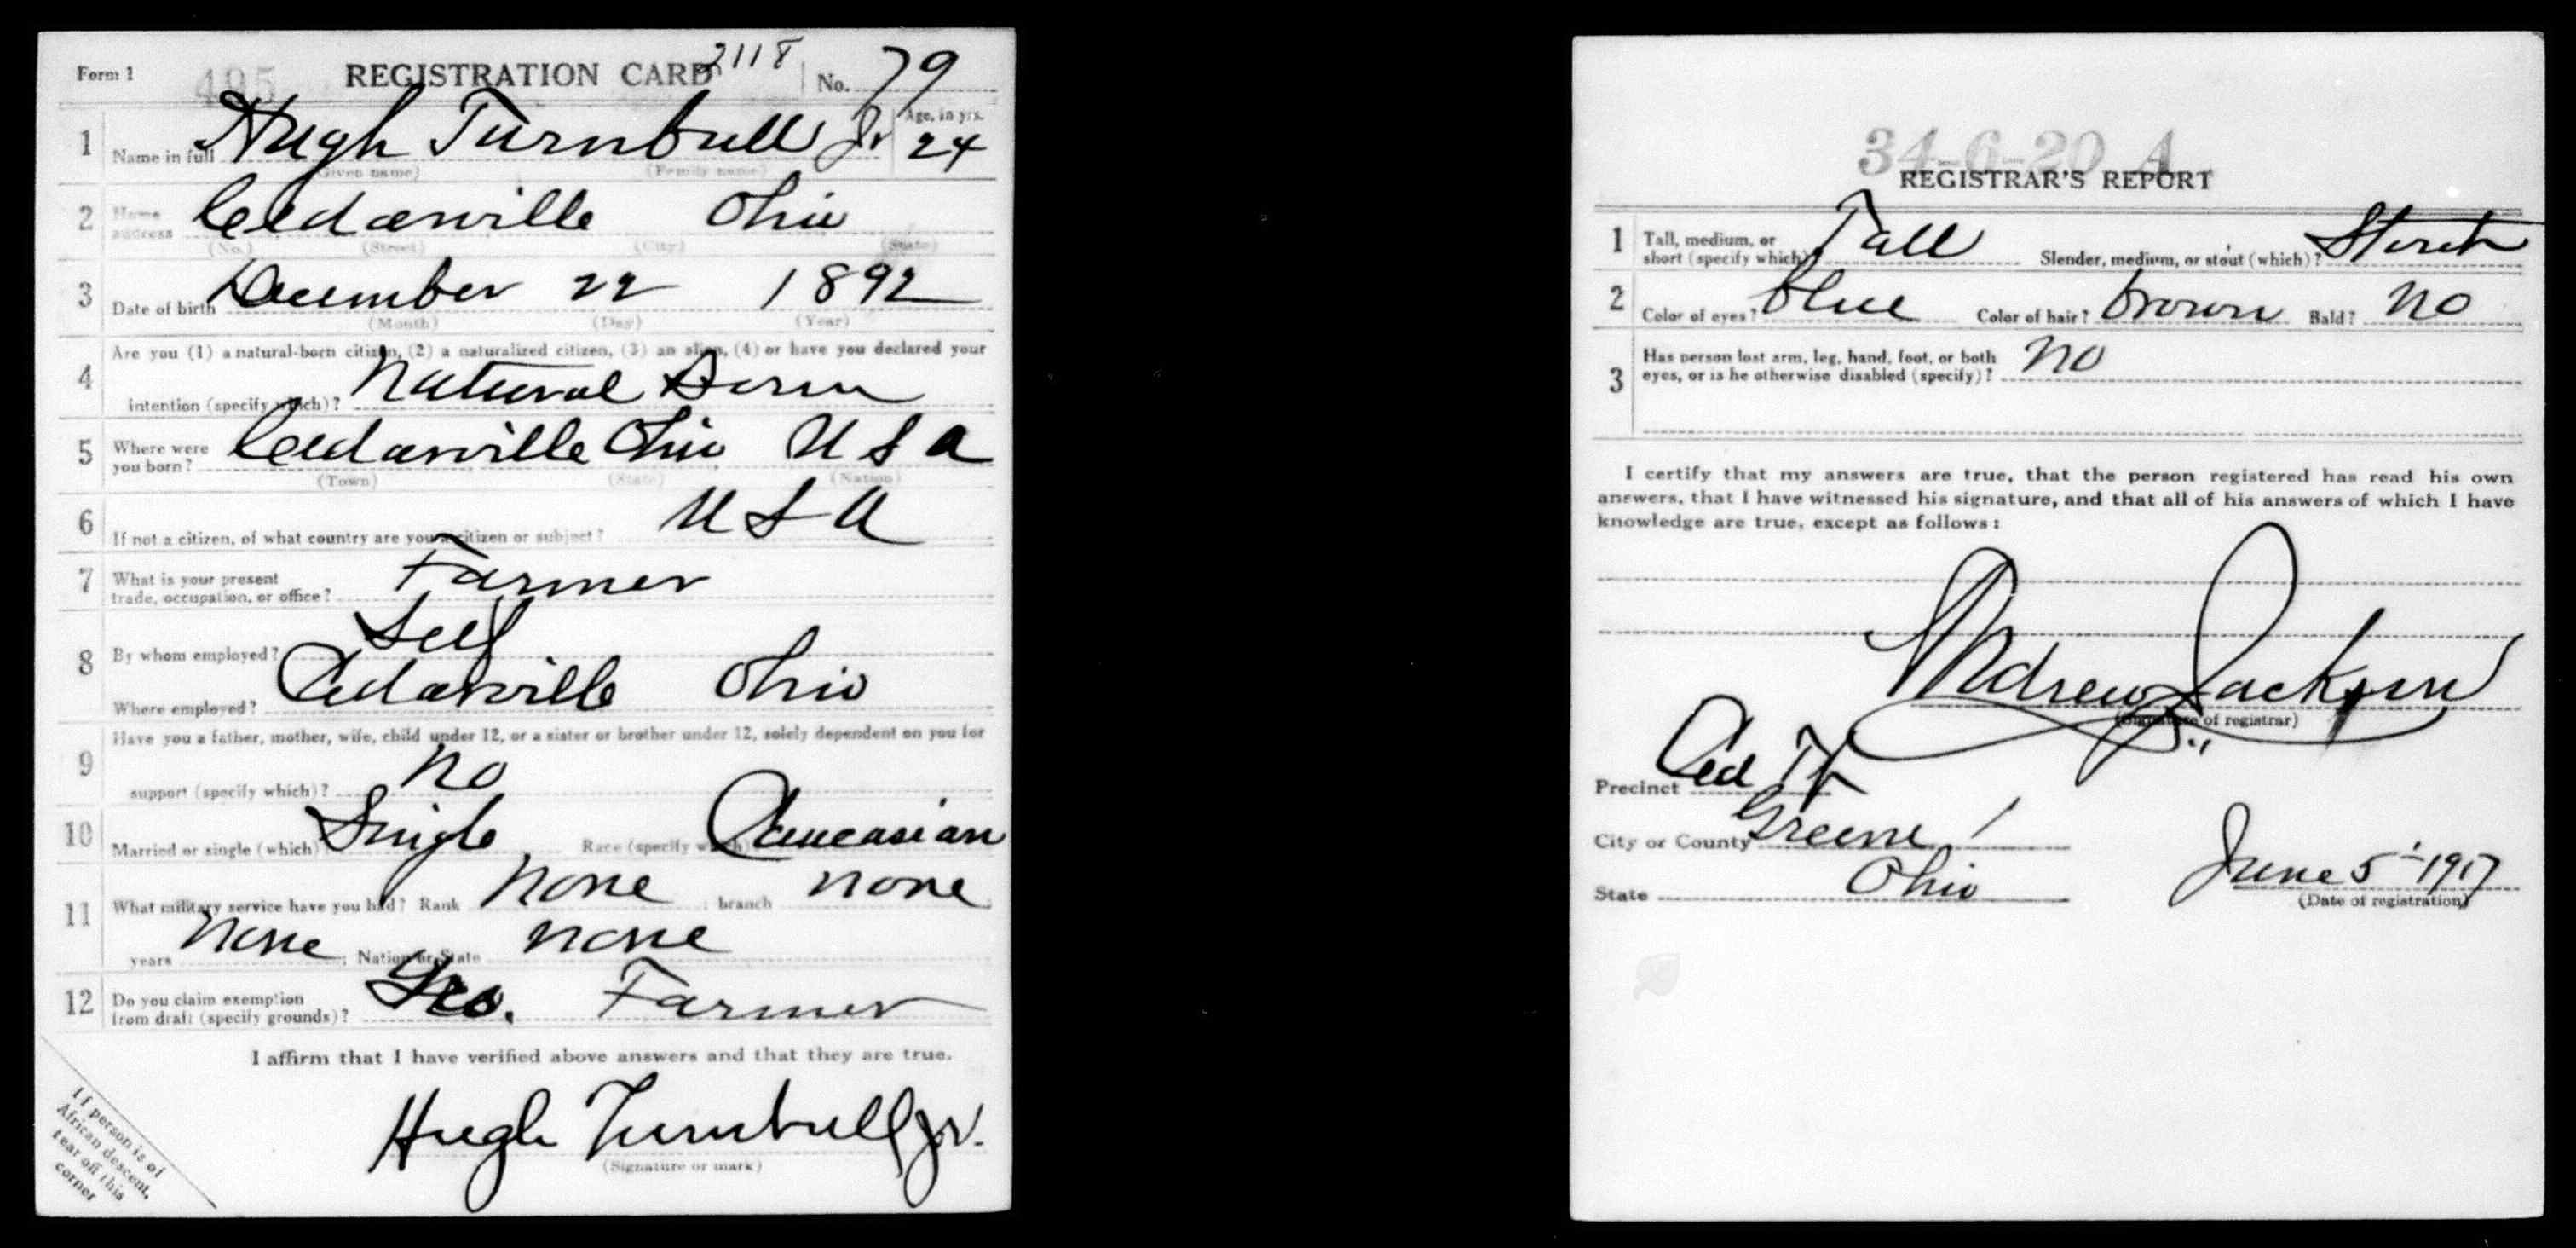 Form 1 495 REGISTRATION CARD 2118 No. 79
1 Name in full Hugh Turnbull Jr Age, in yrs. 24
(Given name) (Family name)
2 Home address Cedarville Ohio
(No.) (Street) (City) (State)
3 Date of birth December 22 1892
(Month) (Day) (Year)
4 Are you (1) a natural-born citizen, (2) a naturalized citizen, (3) an alien, (4) or have you declared your
intention (specify which)? Natural Born
5 Where were you born? Cedarville Ohio USA
(Town) (State) (Nation)
6 If not a citizen, of what country are you a citizen or subject? USA
7 What is your present trade, occupation, or office? Farmer
8 By whom employed? Self
Where employed? Cedarville Ohio
9 Have you a father, mother, wife, child under 12, or a sister or brother under 12, solely dependent on you for
support (specify which)? No
10 Married or single (which) Single Race (specify which) Caucasian
11 What military service have you had? Rank None ; branch none ;
years None ; Nation or State none
12 Do you claim exemption from draft (specify grounds)? Farmer
I affirm that I have verified above answers and that they are true.
Hugh Turnbull Jr.
(Signature or mark)
If person is of
African descent,
tear off this
corner
34-6-20 A
REGISTRAR'S REPORT
1 Tall, medium, or short (specify which)? Tall Slender, medium, or stout (which)?
2 Color of eyes? Blue Color of hair? Brown Bald? No
3 Has person lost arm, leg, hand, foot, or both eyes, or is he otherwise disabled (specify)? No
I certify that my answers are true, that the person registered has read his own
answers, that I have witnessed his signature, and that all of his answers of which I have
knowledge are true, except as follows:
Andrew Jackson
(Signature of registrar)
Precinct Ced
City or County Greene
State Ohio June 5-1917
(Date of registration)